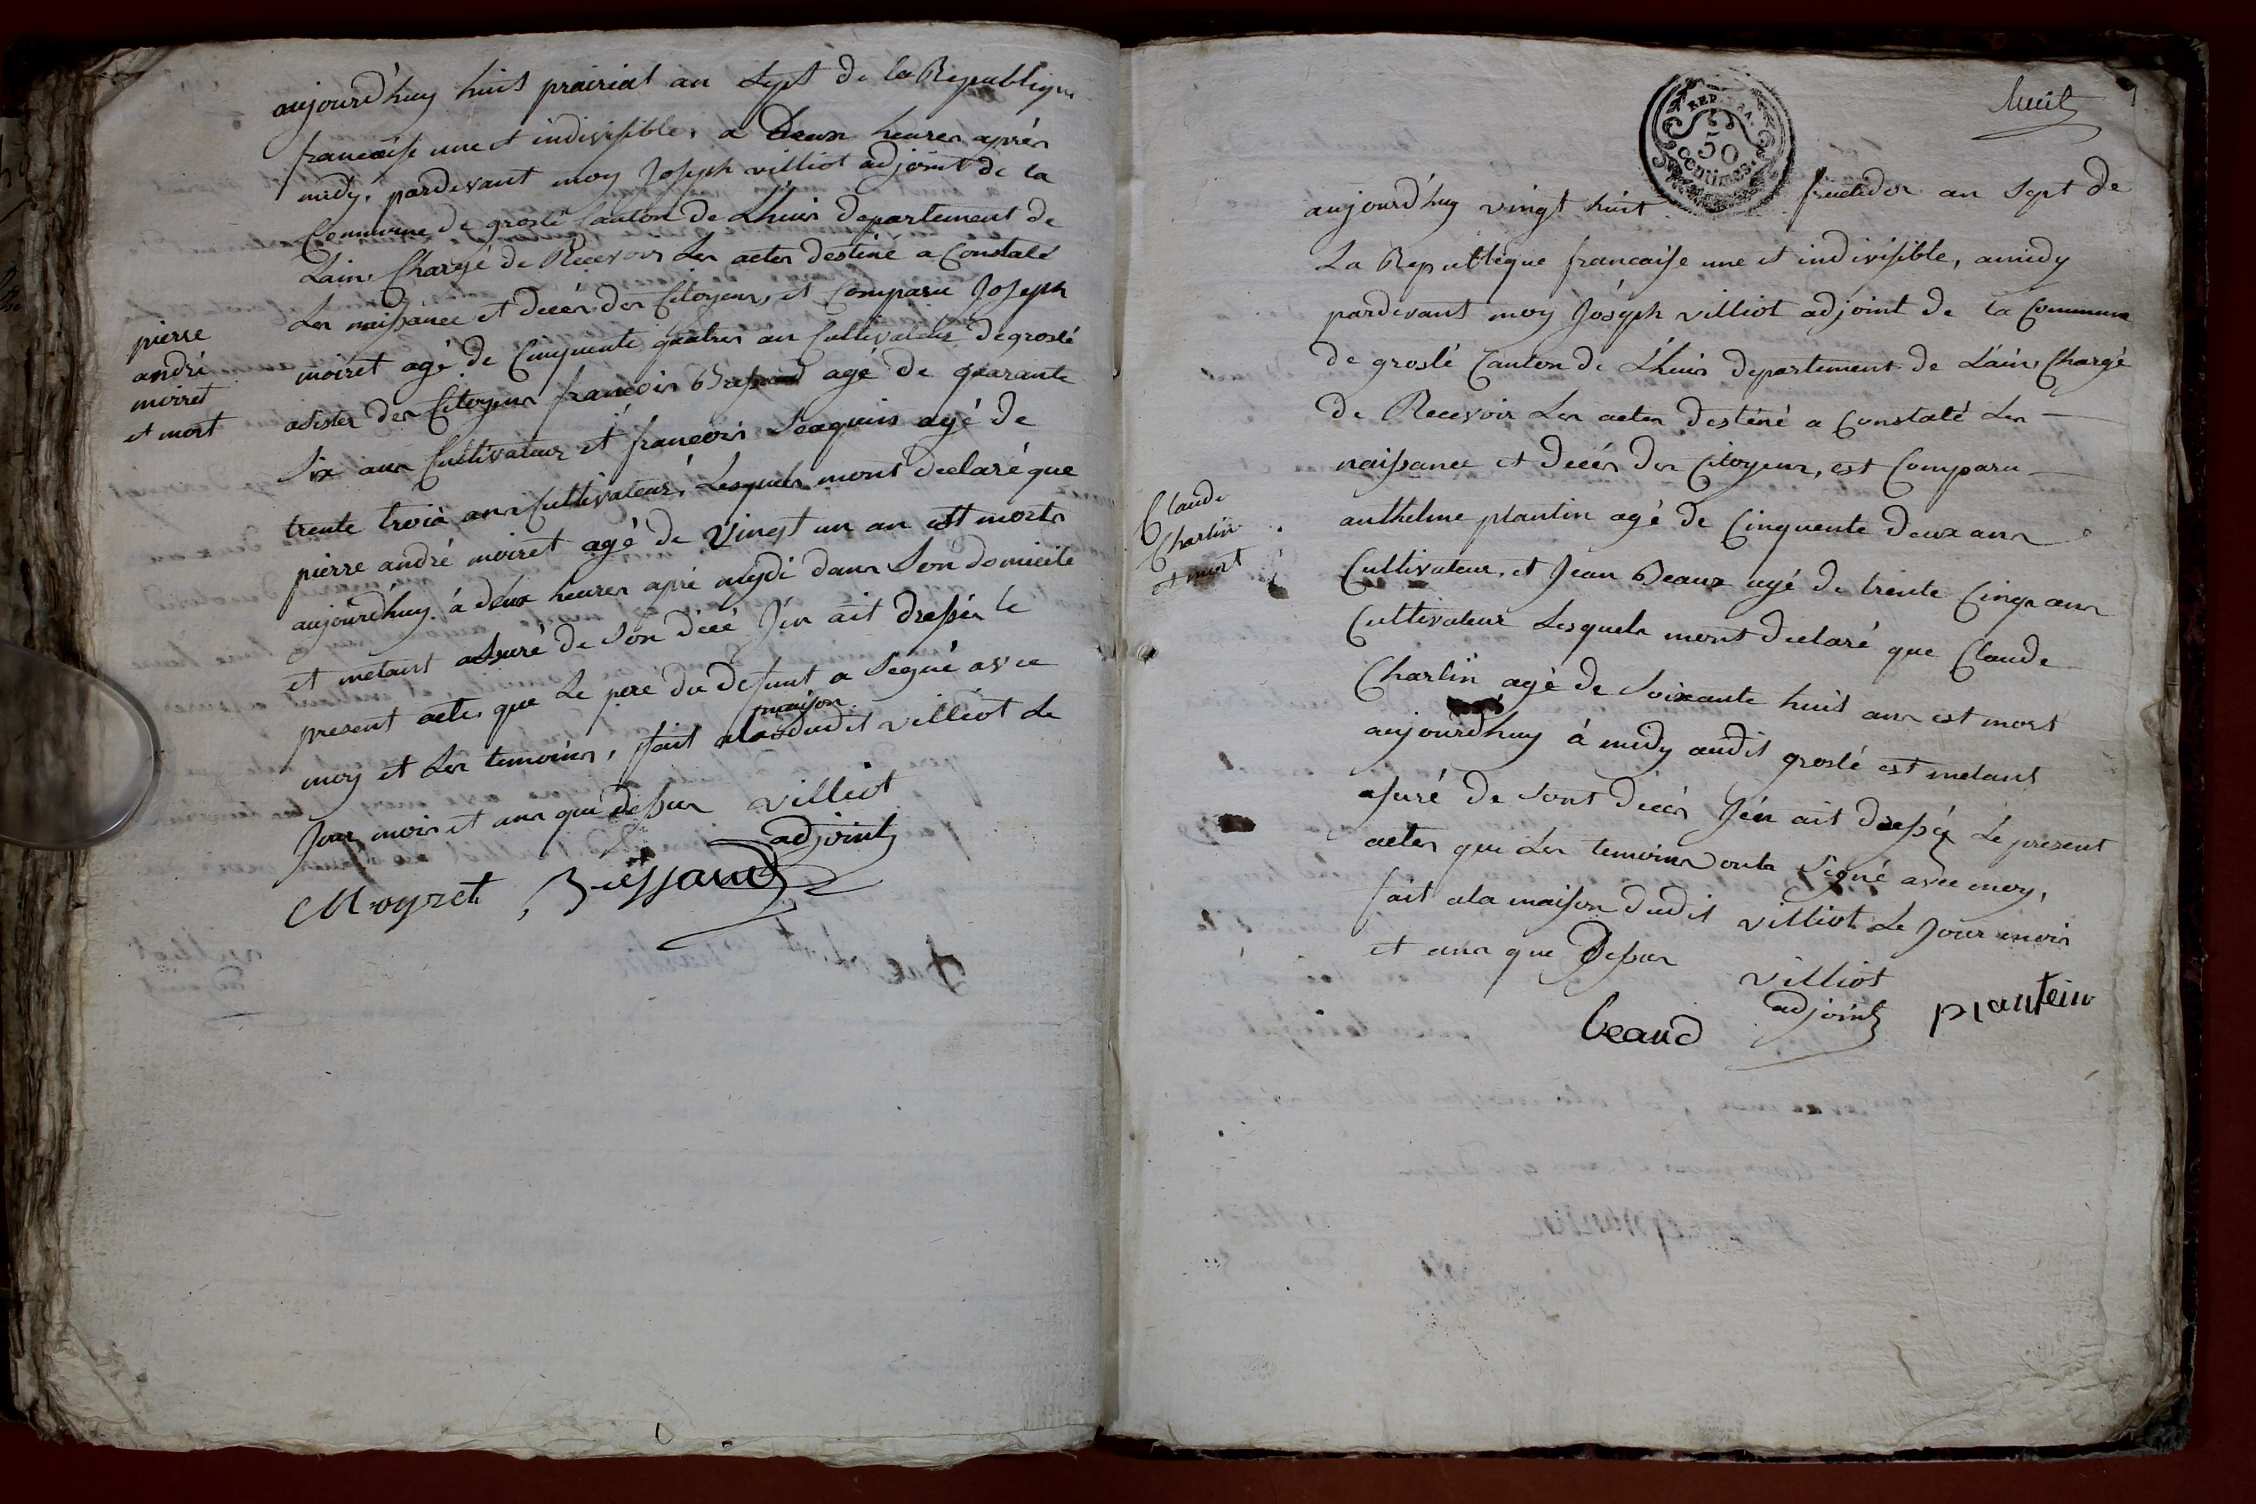 aujourd'huy huit prairial an Sept de la Republique
francaise une et indivisible, a deux heures aprés
midy, pardevant moy Joseph villiot adjoint de la
Commune de groslé Canton de Lhuis departement de
Lain, Chargé de Recevoir Les actes destiné a Constaté
Les naissance et decés des Citoyens, et Comparu Joseph
moiret agé de Cinquente quatres an Cultivateur de groslé
asister des Citoyens francois Bressand agé de quarante
Six ans Cultivateur et francois Seaquin agé de
trente trois ans Cultivateur, Lesquels mont declaré que
pierre andré moiret agé de vingt un an est morts
aujourdhuy à deux heures apré mydi dans Son domicile
et métant assuré de Son décé J'en ait dressér le
present actes que Le pere du defunt a Segné avec
moy et Les temoins, fait ala maison dudit villiot Le
Jour mois et ans que dessus
villiot
adjoint
Moyret Bressand
pierre
andré
moiret
et mort
huit
REP. FRA.
50
centimes.
aujourd'huy vingt huit fructidor an Sept de
La Republeque francaise une et indivisible, amidy
pardevant moy Joséph villiot adjoint de la Commune
de groslé Canton de Lhuis departement de Lain, Chargé
de Recevoir Les actes desténé a Constaté Les
naissance et decés des Citoyens, est Comparu
anthelme plantin agé de Cinquente deux ans
Cultivateur, et Jean Beaux agé de trente Cinq ans
Cultivateur Lesquels mont declaré que Claude
Charlin agé de Soixante huit ans est mort
aujourdhuy à midy audit groslé est métant
asuré de Sont décés J'en ait dressér Le present
actes que Les temoins onts Signé avec moy,
fait ala maison dudit villiot Le Jour mois
et ans que dessus
villiot
adjoint
beaud
plantein
Claude
Charlin
et mort